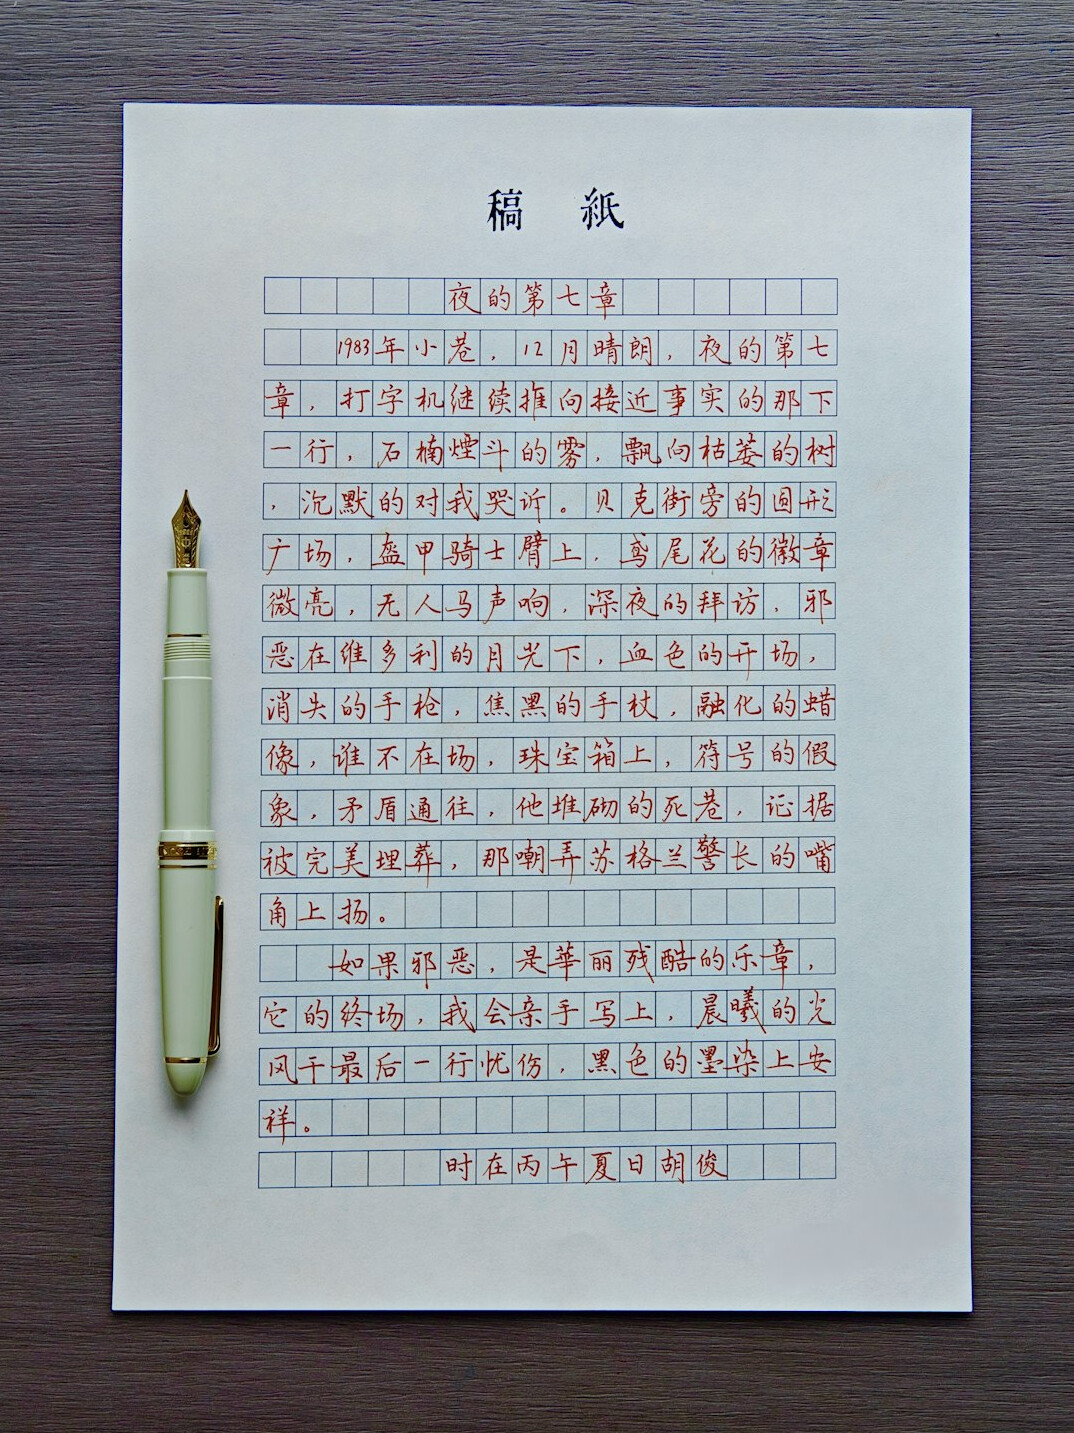 稿 紙
夜的第七章
1983年小巷，12月晴朗，夜的第七
章，打字机继续推向接近事实的那下
一行，石楠煙斗的雾，飘向枯萎的树
，沉默的对我哭诉。贝克街旁的圆形
广场，盔甲骑士臂上，鸢尾花的徽章
微亮，无人马声响，深夜的拜访，邪
恶在维多利的月光下，血色的开场，
消失的手枪，焦黑的手杖，融化的蜡
像，谁不在场，珠宝箱上，符号的假
象，矛盾通往，他堆砌的死巷，证据
被完美埋葬，那嘲弄苏格兰警长的嘴
角上扬。
如果邪恶，是華丽残酷的乐章，
它的终场，我会亲手写上，晨曦的光
风干最后一行忧伤，黑色的墨染上安
祥。
时在丙午夏日胡俊